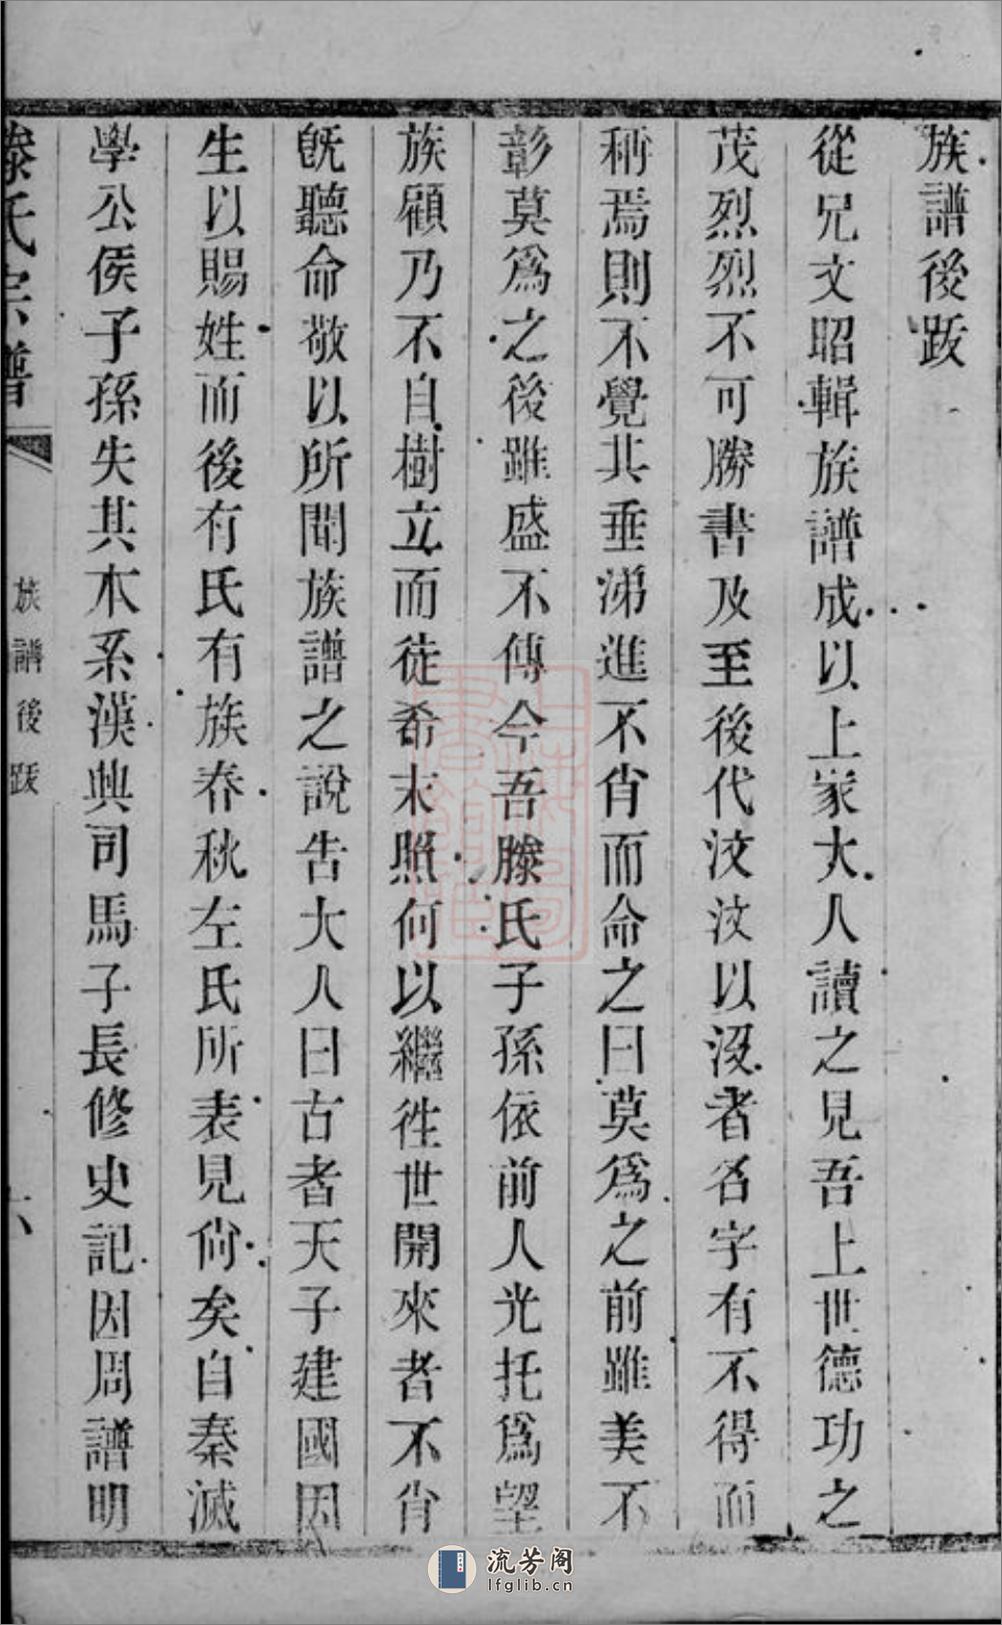 族譜後跋
從兄文昭輯族譜成以上家大人讀之見吾上世德功之
茂烈烈不可勝書及至後代汶汶以沒者名字有不得而
稱焉則不覺其垂涕進不肖而命之曰莫爲之前雖美不
彰莫爲之後雖盛不傳今吾滕氏子孫依前人光托爲望
族顧乃不自樹立而徒希末照何以繼徃世開來者不肖
旣聽命敬以所聞族譜之說告大人曰古者天子建國因
生以賜姓而後有氏有族春秋左氏所表見尙矣自秦滅
學公侯子孫失其本系漢興司馬子長修史記因周譜明
滕氏宗譜
族譜後跋
六
流芳阁
lfglib.cn